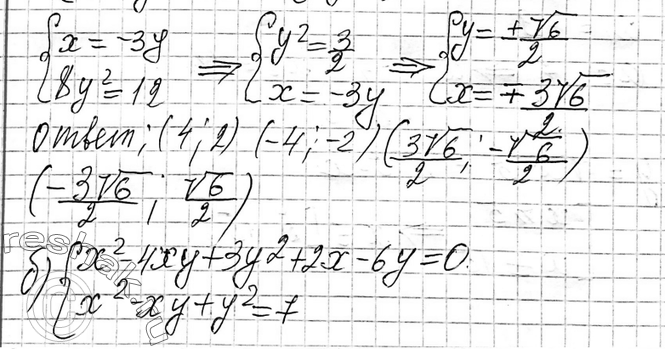 {x = -3y {y² = 3/2 {y = ±√6/2
{8y² = 12 ⇒ {x = -3y ⇒ {x = ∓3√6/2
ответ; (4; 2) (-4; -2) (3√6/2; -√6/2)
(-3√6/2; √6/2)
б) {x² - 4xy + 3y² + 2x - 6y = 0.
{x² - xy + y² = 7
reshak.ru